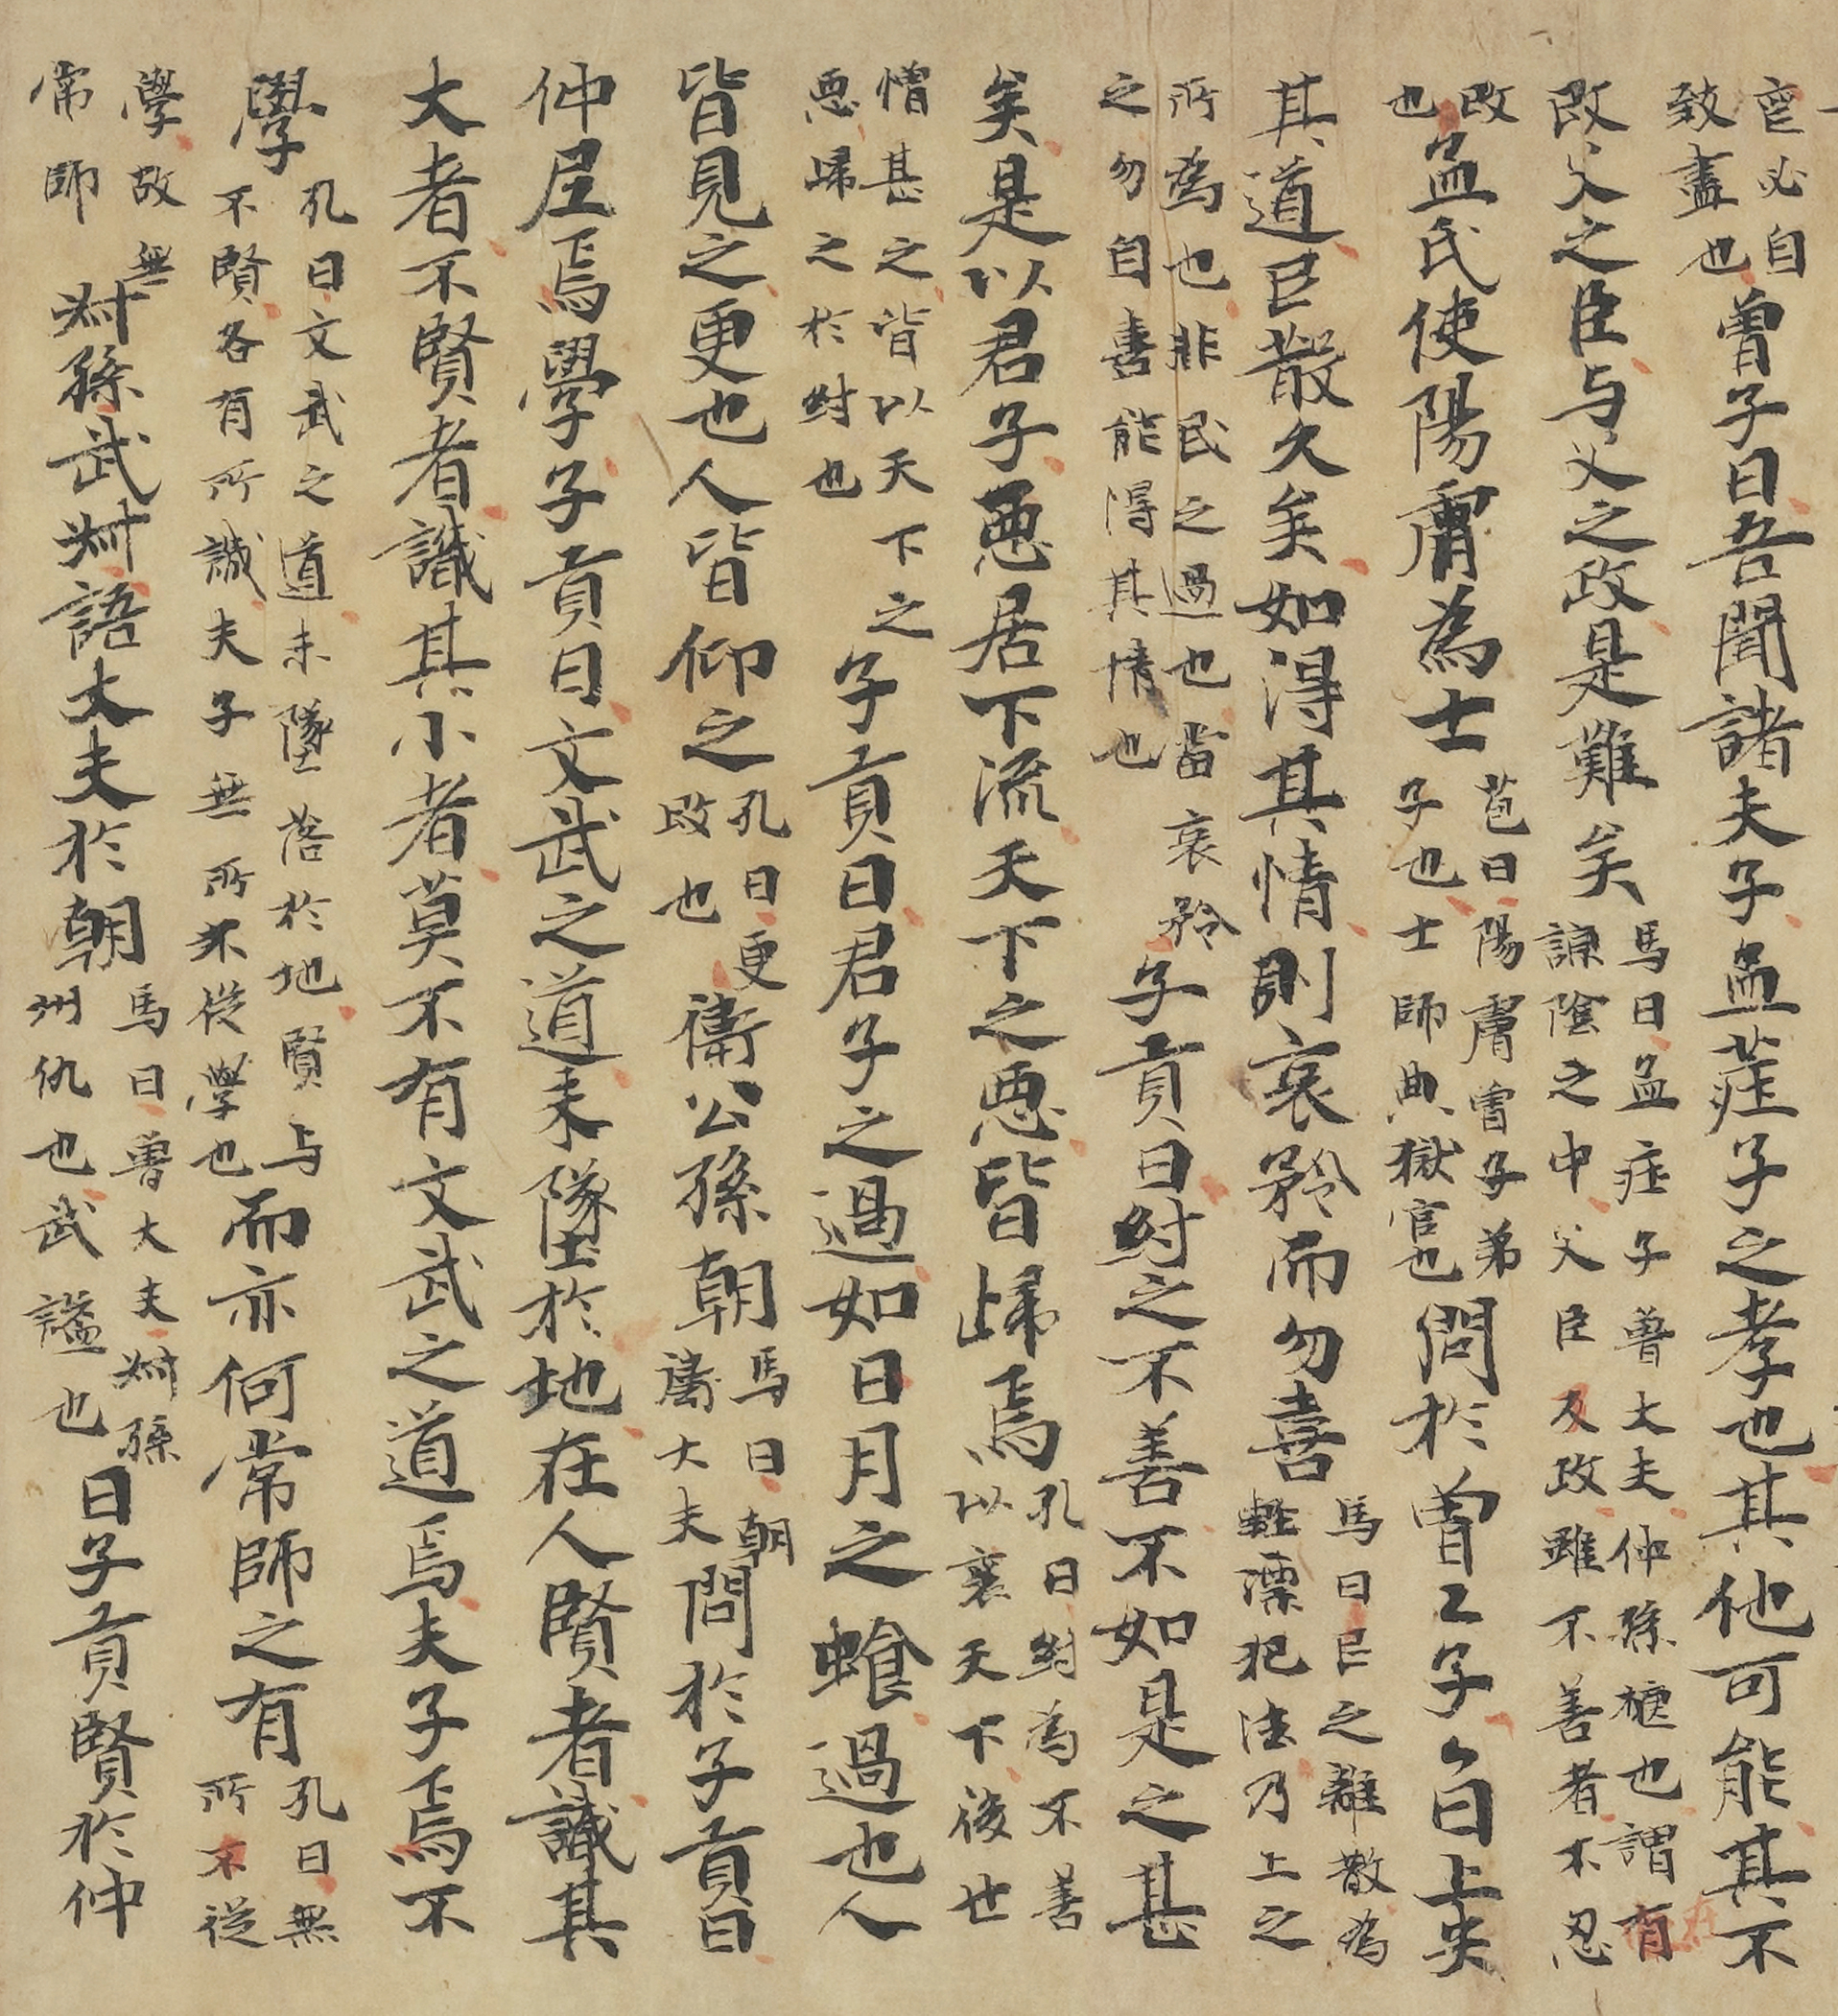 喪必自致盡也曾子曰吾聞諸夫子孟莊子之孝也其他可能其不
改父之臣与父之政是難矣馬曰孟庄子魯大夫仲孫也謂有諒陰之中父臣及政雖不善者不忍
改也孟氏使陽膚為士苞曰陽膚曾子弟子也士師典獄官也問於曾〻子〻曰上失
其道民散久矣如得其情則哀矜而勿喜馬曰民之離散為軽漂犯法乃上之
所為也非民之過也當哀矜之勿自喜能得其情也子貢曰紂之不善不如是之甚
矣是以君子惡居下流天下之惡皆歸焉孔曰紂為不善以喪天下後世
憎甚之皆以天下之惡歸之於紂也子貢曰君子之過如日月之蝕過也人
皆見之更也人皆仰之孔曰更改也衛公孫朝馬曰朝衛大夫問於子貢曰
仲尼焉學子貢曰文武之道未墜於地在人賢者識其
大者不賢者識其小者莫不有文武之道焉夫子焉不
學孔曰文武之道未墜落於地賢与不賢各有所識夫子無所不從學也而亦何常師之有孔曰無所不從
學故無常師叔孫武叔語大夫於朝馬曰魯大夫叔孫州仇也武謚也曰子貢賢於仲